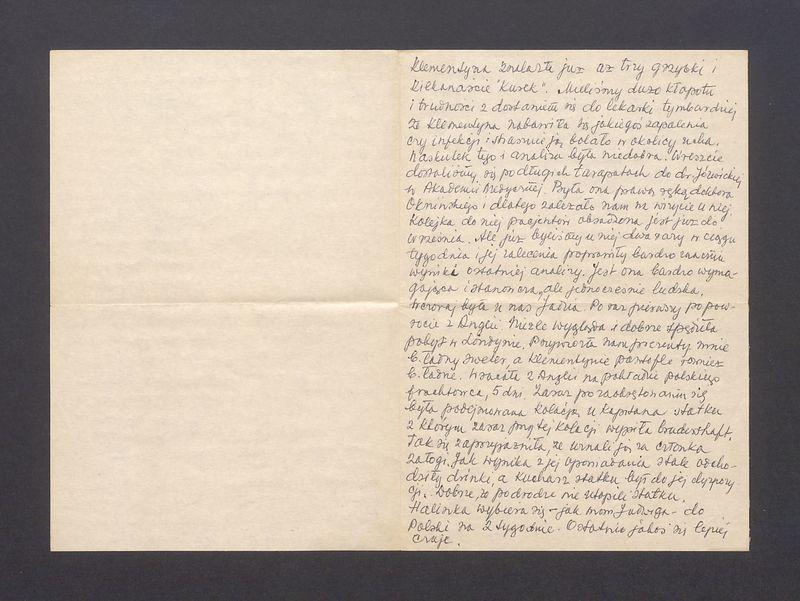 Klementyna znalazła już aż trzy grzybki i
kilkanaście "kurek". Mieliśmy dużo kłopotu
i trudności z dostaniem się do lekarki tymbardziej
że Klementyna nabawiła się jakiegoś zapalenia
czy infekcji i strasznie ją bolało w okolicy ucha.
Naskutek tego i analiza była niedobra. Wreszcie
dostaliśmy się po długich tarapatach do dr. Józwickiej
w Akademii Medycznej. Była ona prawą ręką doktora
Oknińskiego i dlatego zależało nam na wizycie u niej.
Kolejka do niej pacjentów obsadzona jest już do
września. Ale już byliśmy u niej dwa razy w ciągu
tygodnia i jej zalecenia poprawiły bardzo znacznie
wyniki ostatniej analizy. Jest ona bardzo wyma-
gająca i stanowcza, ale jednocześnie ludzka.
Wczoraj była u nas Jadzia. Po raz pierwszy po pow-
rocie z Anglii. Nieźle wygląda i dobrze spędziła
pobyt w Londynie. Poprzywoziła nam prezenty mnie
b. ładny sweter, a Klementynie pantofle również
b. ładne. Wracała z Anglii na pokładzie polskiego
frachtowca, 5 dni. Zaraz po zaokrętowaniu się
była podejmowana kolacją u kapitana statku
z którym zaraz przy tej kolacji wypiła bruderschaft.
Tak się zaprzyjaźniła, że uznali ją za członka
załogi. Jak wynika z jej opowiadania stale odcho-
dziły drinki, a kucharz statku był do jej dyspozy
cji. Dobrze, że po drodze nie utopili statku.
Halinka wybiera się – jak mówi Jadwiga – do
Polski na 2 tygodnie. Ostatnio jakoś się lepiej
czuje.